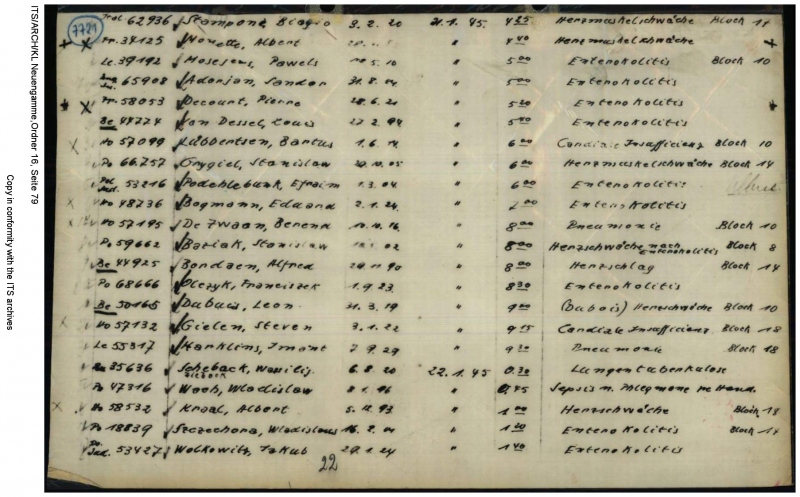 ITS/ARCHIKL Neuengamme, Ordner 16, Seite 79
Copy in conformity with the ITS archives
7721
62936 Stampone, Biagio 3. 2. 20 21. 1. 45. 4 35 Herzmuskelschwäche Block 11
Fr. 34125 Nouette, Albert " 4 40 Herzmuskelschwäche
Le. 39192 Mosesers, Pawels 5. 10 " 5 00 Enterokolitis Block 10
65908 Adorjan, Sandor 31. 8. 04 " 5 00 Enterokolitis
Fr. 58053 Decourt, Pierre 28. 6. 21 " 5 20 Enterokolitis
Be 44774 van Dessel, Louis 27. 2. 94 " 5 40 Enterokolitis
Ho 57099 Lübbertsen, Bartus 1. 6. 14 " 6 00 Cardiale Insufficienz Block 10
Po 66.757 Grygiel, Stanislaw 20. 10. 05 " 6 00 Herzmuskelschwäche Block 14
Pol Jud. 53216 Podchlebnik, Efraim 1. 3. 04. " 6 00 Enterokolitis
Ho 48736 Bogmann, Eduard 2. 1. 24. " 7 00 Enterokolitis
Ho 57195 De Zwaan, Berend 10. 16 " 8 00 Pneumonie Block 10
Po 59662 Baziak, Stanislaw 02 " 8 00 Herzschwäche nach Enterokolitis Block 8
Be 44925 Bondaen, Alfred 90 " 8 00 Herzschlag Block 14
Po 68666 Olczyk, Franciszek 1. 9. 23. " 8 30 Enterokolitis
Be 50165 Dubuis, Leon. 21. 3. 19 " 9 00 (Dubois) Herzschwäche Block 10
Ho 57132 Gielen, Steven 3. 1. 22 " 9 15 Cardiale Insufficienz Block 18
Le 55317 Kanklins, Imant 7. 9. 29 " 9 30 Pneumonie Block 18
35636 Scheback, Wassilij 6. 8. 20 22. 1. 45 0. 30 Lungentuberkulose
Po 47316 Woch, Wladislaw 8. 1. 96 " 0. 45 Sepsis n. Phlegmone re Hand.
Ho 58532 Kraal, Albert 5. 12. 93 " 1 00 Herzschwäche Block 18
Po 18839 Szczechora, Wladislaus 16. 2. 04 " 1 20 Enterokolitis Block 14
Po. Jud. 53427 Wolkowitz, Jakub 29. 1. 24 " 1 40 Enterokolitis
22